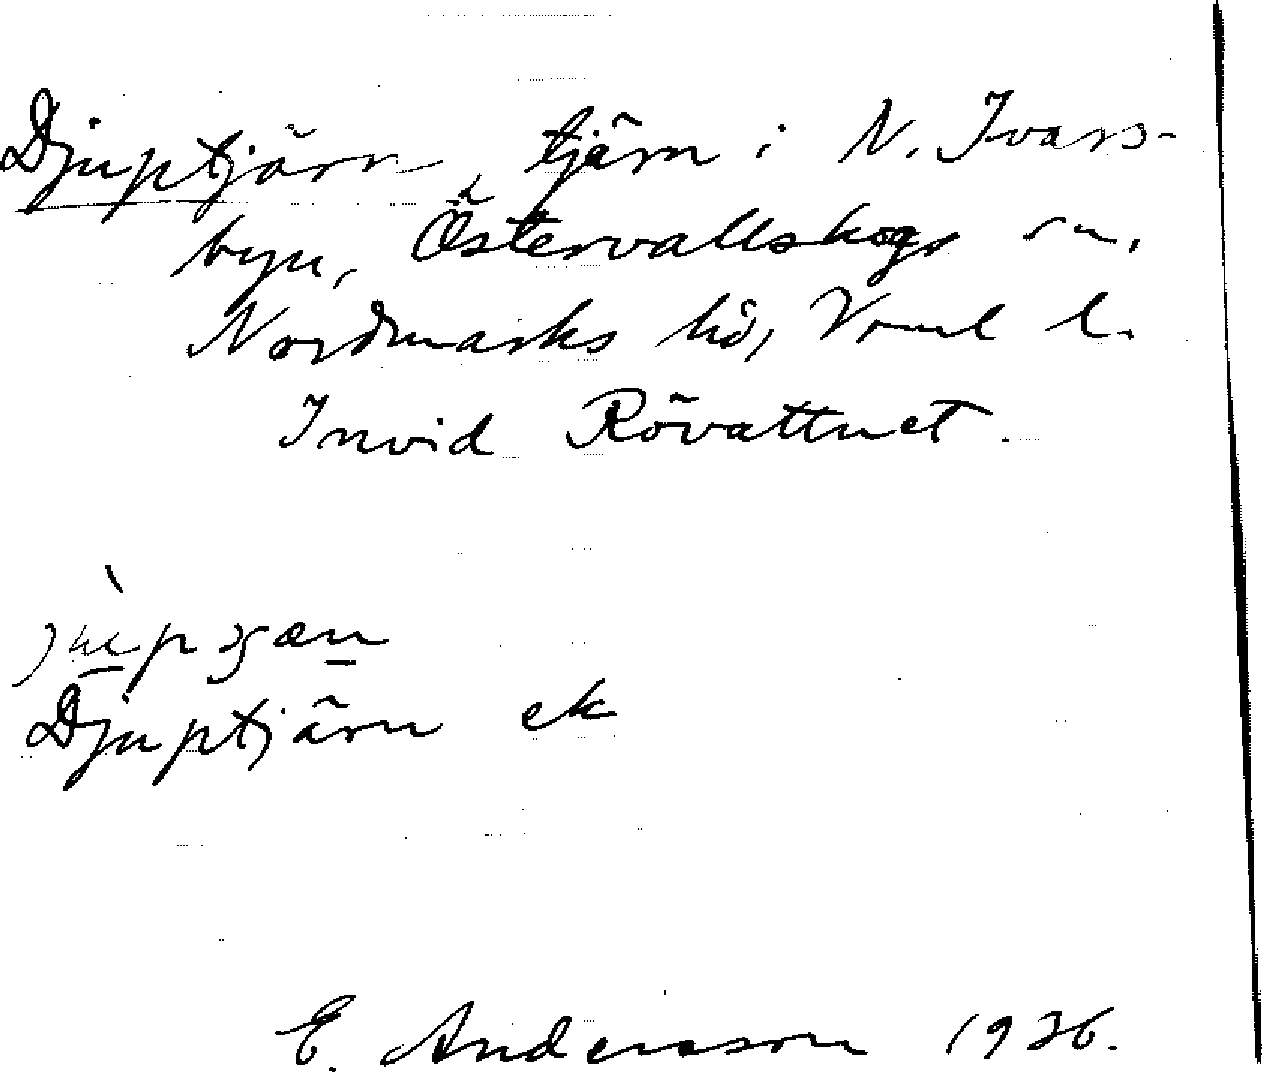 Djuptjärn, tjärn i N. Ivars-
byn, Östervallskogs sn,
Nordmarks hd, Vrml l.
Invid Rövattnet.
Djuptjärn ek
E. Andersson 1936.